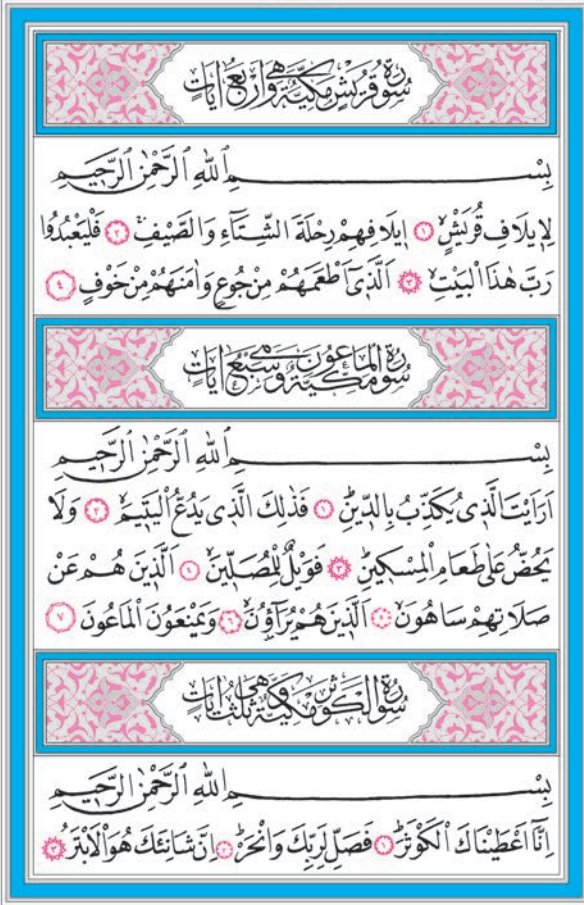 سُورَةُ قُرَيْشٍ مَكِّيَّةٌ وَهِيَ اَرْبَعُ اٰيَاتٍ
بِسْــــــــمِ اللّٰهِ الرَّحْمٰنِ الرَّحٖيمِ
لِاٖيلَافِ قُرَيْشٍۙ ﴿١﴾ اٖيلَافِهِمْ رِحْلَةَ الشِّتَٓاءِ وَالصَّيْفِۚ ﴿٢﴾ فَلْيَعْبُدُوا
رَبَّ هٰذَا الْبَيْتِۙ ﴿٣﴾ اَلَّذٖٓي اَطْعَمَهُمْ مِنْ جُوعٍ وَاٰمَنَهُمْ مِنْ خَوْفٍ ﴿٤﴾
سُورَةُ الْمَاعُونِ مَكِّيَّةٌ وَهِيَ سَبْعُ اٰيَاتٍ
بِسْــــــــمِ اللّٰهِ الرَّحْمٰنِ الرَّحٖيمِ
اَرَاَيْتَ الَّذٖي يُكَذِّبُ بِالدّٖينِۜ ﴿١﴾ فَذٰلِكَ الَّذٖي يَدُعُّ الْيَتٖيمَۙ ﴿٢﴾ وَلَا
يَحُضُّ عَلٰى طَعَامِ الْمِسْكٖينِۜ ﴿٣﴾ فَوَيْلٌ لِلْمُصَلّٖينَۙ ﴿٤﴾ اَلَّذٖينَ هُمْ عَنْ
صَلَاتِهِمْ سَاهُونَۙ ﴿٥﴾ اَلَّذٖينَ هُمْ يُرَٓاؤُ۫نَۙ ﴿٦﴾ وَيَمْنَعُونَ الْمَاعُونَ ﴿٧﴾
سُورَةُ الْكَوْثَرِ مَكِّيَّةٌ وَهِيَ ثَلٰثُ اٰيَاتٍ
بِسْــــــــمِ اللّٰهِ الرَّحْمٰنِ الرَّحٖيمِ
اِنَّٓا اَعْطَيْنَاكَ الْكَوْثَرَۜ ﴿١﴾ فَصَلِّ لِرَبِّكَ وَانْحَرْۜ ﴿٢﴾ اِنَّ شَانِئَكَ هُوَ الْاَبْتَرُ ﴿٣﴾